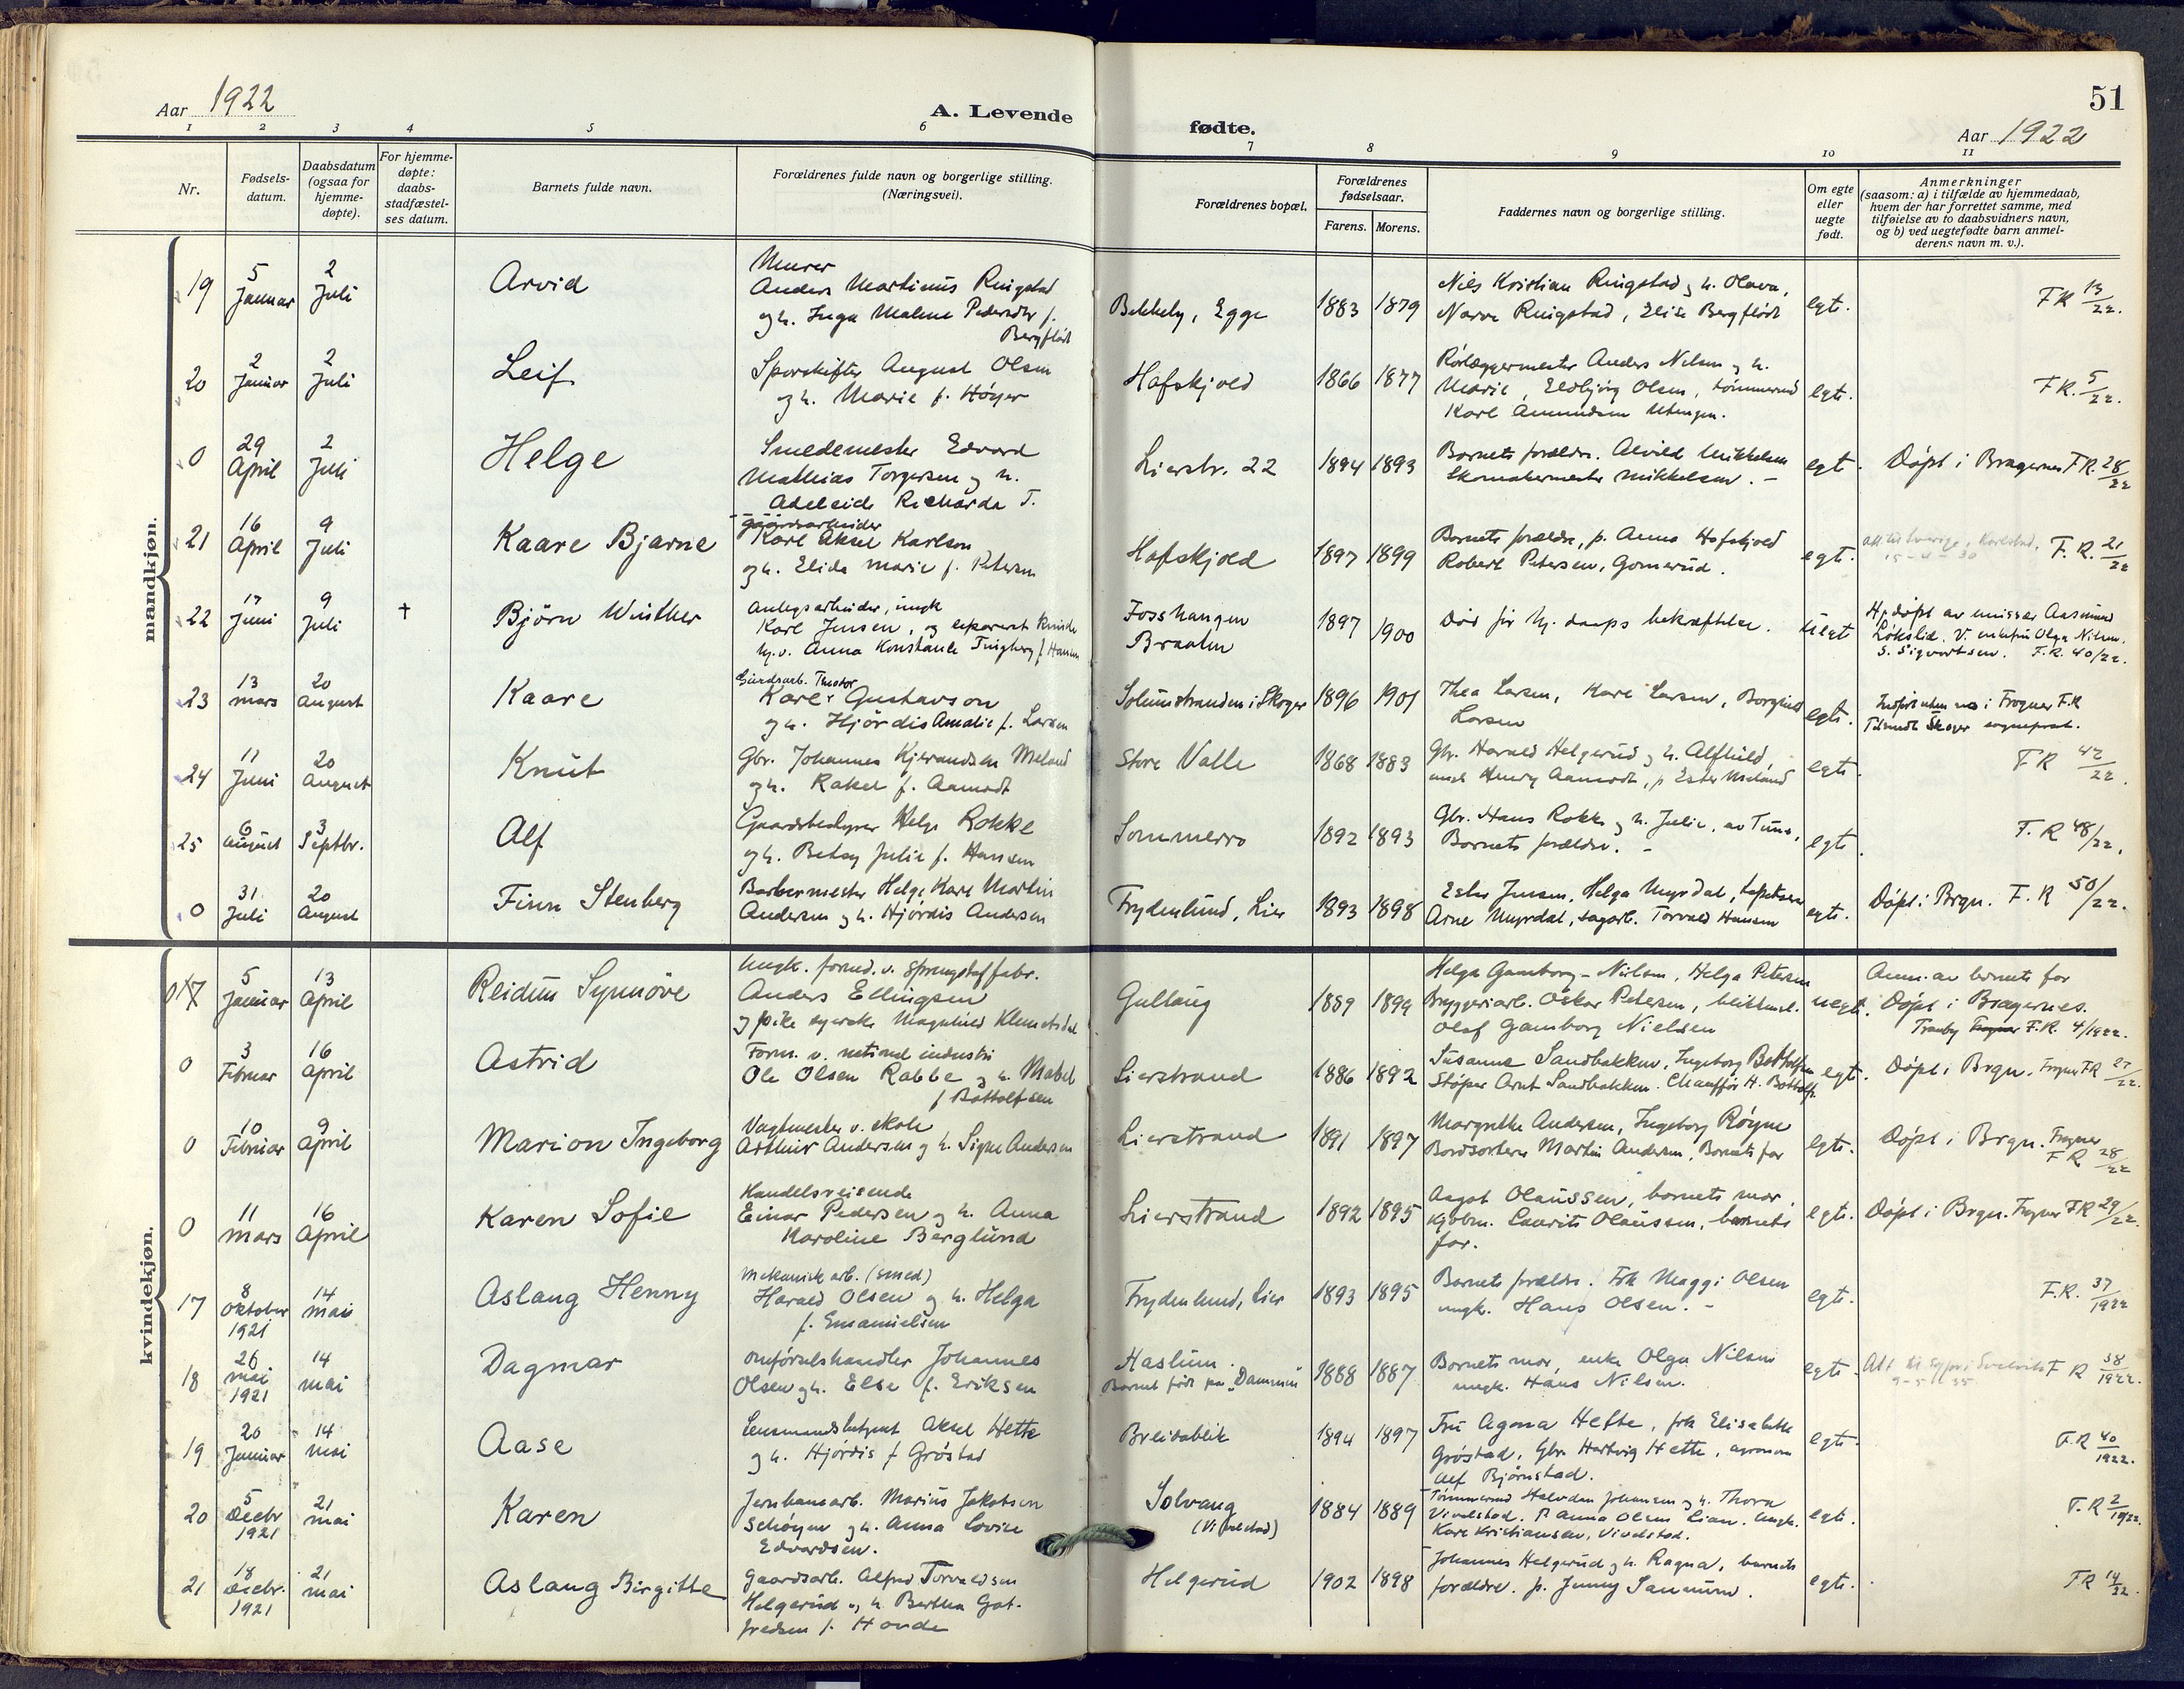 51
Aar 1922
A. Levende fødte.
Aar 1922
1 2 3 4 5 6 7 8 9 10 11
Nr.
Fødsels-
datum.
Daabsdatum
(ogsaa for
hjemme-
døpte).
For hjemme-
døpte:
daabs-
stadfæstel-
ses datum.
Barnets fulde navn.
Forældrenes fulde navn og borgerlige stilling.
(Næringsvei).
Forældrenes bopæl.
Forældrenes
fødselsaar.
Farens. Morens.
Faddernes navn og borgerlige stilling.
Om egte
eller
uegte
født.
Anmerkninger
(saasom: a) i tilfælde av hjemmedaab,
hvem der har forrettet samme, med
tilføielse av to daabsvidners navn,
og b) ved uegtefødte barn anmel-
derens navn m. v.).
mandkjøn.
19 5 Januar 2 Juli Arvid
Murer
Anders Martinius Ringstad
og h. Inga Malene Pedersdtr f.
Bergflødt
Bekkely, Egge 1883 1879
Nils Kristian Ringstad og h. Olava,
Narve Ringstad, Elise Bergflødt
egte. FR 13/22.
20 2 Januar 2 Juli Leif
Sporskifter August Olsen
og h. Marie f. Høyer
Hafskjold 1866 1877
Rørlæggermester Anders Nilsen og h.
Marie, Eldbjørg Olsen, tømmermd
Karl Amundsen
egte. FR. 5/22.
0 29 April 2 Juli Helge
Smedemester Edvard
Mathias Torgersen og h.
Adeleide Richarda T.
Lierstr. 22 1894 1893
Barnets forældre. Alvild Mikkelsen
Skomakermester Mikkelsen. -
egte. Døpt i Bragernes FR. 28/22
21 16 April 9 Juli Kaare Bjarne
Gaardsarbeider
Karl Aksel Karlson
og h. Elida Marie f. Petersen
Hafskjold 1897 1899
Barnets forældre, p. Anna Hafskjold
Robert Petersen, Gomerud.
egte. Att til Sverige, Karlstad, F. R. 21/22
22 17 Juni 9 Juli † Bjørn Winther
Anlegsarbeider, ungk
Karl Jensen, og separert kvinde
Anna Konstanse Tingberg f. Hansen
Fosshaugen
Braaten
1897 1900
Død før hj. daaps bekræftelse.
uegte
Hj. døpt av emissær Aasmund
Løkslid. V. Olga Nilsen.
S. Sigvartsen. F.R. 40/22.
23 13 mars 20 August Kaare
Gaardsarb. Theodor
Karl Gustavson
og h. Hjørdis Amalie f. Larsen
Solumstranden i Skoger 1896 1901
Thea Larsen, Kare Larsen, Borghild
Larsen
egte. i Frogner F.R
Tilmeldt Skoger sogneprest.
24 11 Juni 20 August Knut
Gbr. Johannes Kjerandsen Meland
og h. Rakel f. Aamodt
Store Valle 1868 1883
Gbr. Harald Helgerud og h. Alfhild,
ungk Henry Aamodt, p Ester Meland
egte. FR 42/22.
25 6 august 3 Septbr. Alf
Gaardsbestyrer Helge Rokke
og h. Betsy Julie f. Hansen
Sommerro 1892 1893
Gbr. Hans Rokke og h. Julie, av Tune,
Barnets forældre. -
egte. F. R 48/22.
0 31. Juli 20 August Finn Stenberg
Barbermester Helge Karl Martin
Andersen og h. Hjørdis Andersen
Frydenlund, Lier 1893 1898
Ester Jensen, Helga Myrdal, tapetserer
Arne Myrdal, sagarb. Torvald Hansen
egte. Døpt i Brgn. F. R 50/22.
kvindekjøn.
0 17 5 Januar 13 April Reidun Synnøve
Ungk. formd. v. sprengstoffabr.
Anders Ellingsen
og pike syerske Magnhild Klemetsdal
Gullaug 1889 1899
Helga Gamborg-Nilsen, Helga Petersen
Bryggeriarb. Oskar Petersen,
Olaf Gamborg Nielsen
uegte. Anm. av barnets far
Døpt i Bragernes.
Tranby Frogner F.R. 4/1922.
0 3 Februar 16 April Astrid
Form. v. national industri
Ole Olsen Rabbe og h. Mabel
f Bottolfsen
Lierstrand 1886 1892
Susanne Sandbakken, Ingeborg Bottolfsen
Støper Arnt Sandbakken. Chauffør H. Bottolfs.
egte. Døpt i Brgn. Frogner FR 27/22.
0 10 Februar 9 April Marion Ingeborg
Vagtmester v. skole
Arthur Andersen og h. Signe Andersen
Lierstrand 1891 1897
Margrethe Andersen, Ingeborg Røyne
Bordsorterer Martin Andersen, Barnets far
egte. Døpt i Brgn. Frogner
F R 28/22
0 11 mars 16 April Karen Sofie
Handelsreisende
Einar Pedersen og h. Anna
Karoline Berglund
Lierstrand 1892 1895
Aagot Olaussen, barnets mor,
Kjøbm. Laurits Olaussen, barnets
far.
egte. Døpt i Brgn. Frogner FR 29/22.
17 8 Oktober 1921 14 mai Aslaug Henny
Mekanisk arb. (smed)
Harald Olsen og h. Helga
f. Emanuelsen
Frydenlund, Lier 1893 1895
Barnets forældre. Frk Maggi Olsen
ungk. Hans Olsen. -
egte. F.R. 37/1922
18 26 mai 1921 14 mai Dagmar
Johannes
Olsen og h. Else f. Eriksen
Haslum.
Barnet født paa "Dammen"
1888 1887
Barnets mor, enke Olga Nilsen
ungk. Hans Nilsen.
egte. Att F R 38/1922.
19 20 Januar 14 mai Aase
Lensmandsbetjent Aksel Hette
og h. Hjørdis f Grøstad
Breidablik 1894 1897
Fru Agona Hefte, frk Elisabeth
Grøstad, Gbr. Hartvig Hette, agronom
Alf Bjørnstad.
egte. F.R 40/1922.
20 5 Decbr 1921 21 mai Karen
Jernbanearb. Marius Jakobsen
Schøyen og h. Anna Lovise
Edvardsen.
Solvang
(Vivelstad)
1884 1889
Tømmermd Halvdan Johansen og h. Thora
Vivelstad. P Anna Olsen Lian. Ungk.
Kare Kristiansen, Vivelstad.
egte. F.R 2/1922.
21 18 Decbr. 1921 21 mai Aslaug Birgitte
Gaardsarb. Alfred Torvaldsen
Helgerud og h. Berthea Got-
fredsen f. Hovde
Helgerud 1902 1898
Johannes Helgerud og h. Ragna, barnets
forældre. p. Jenny Sammerud.
egte. FR 14/22.